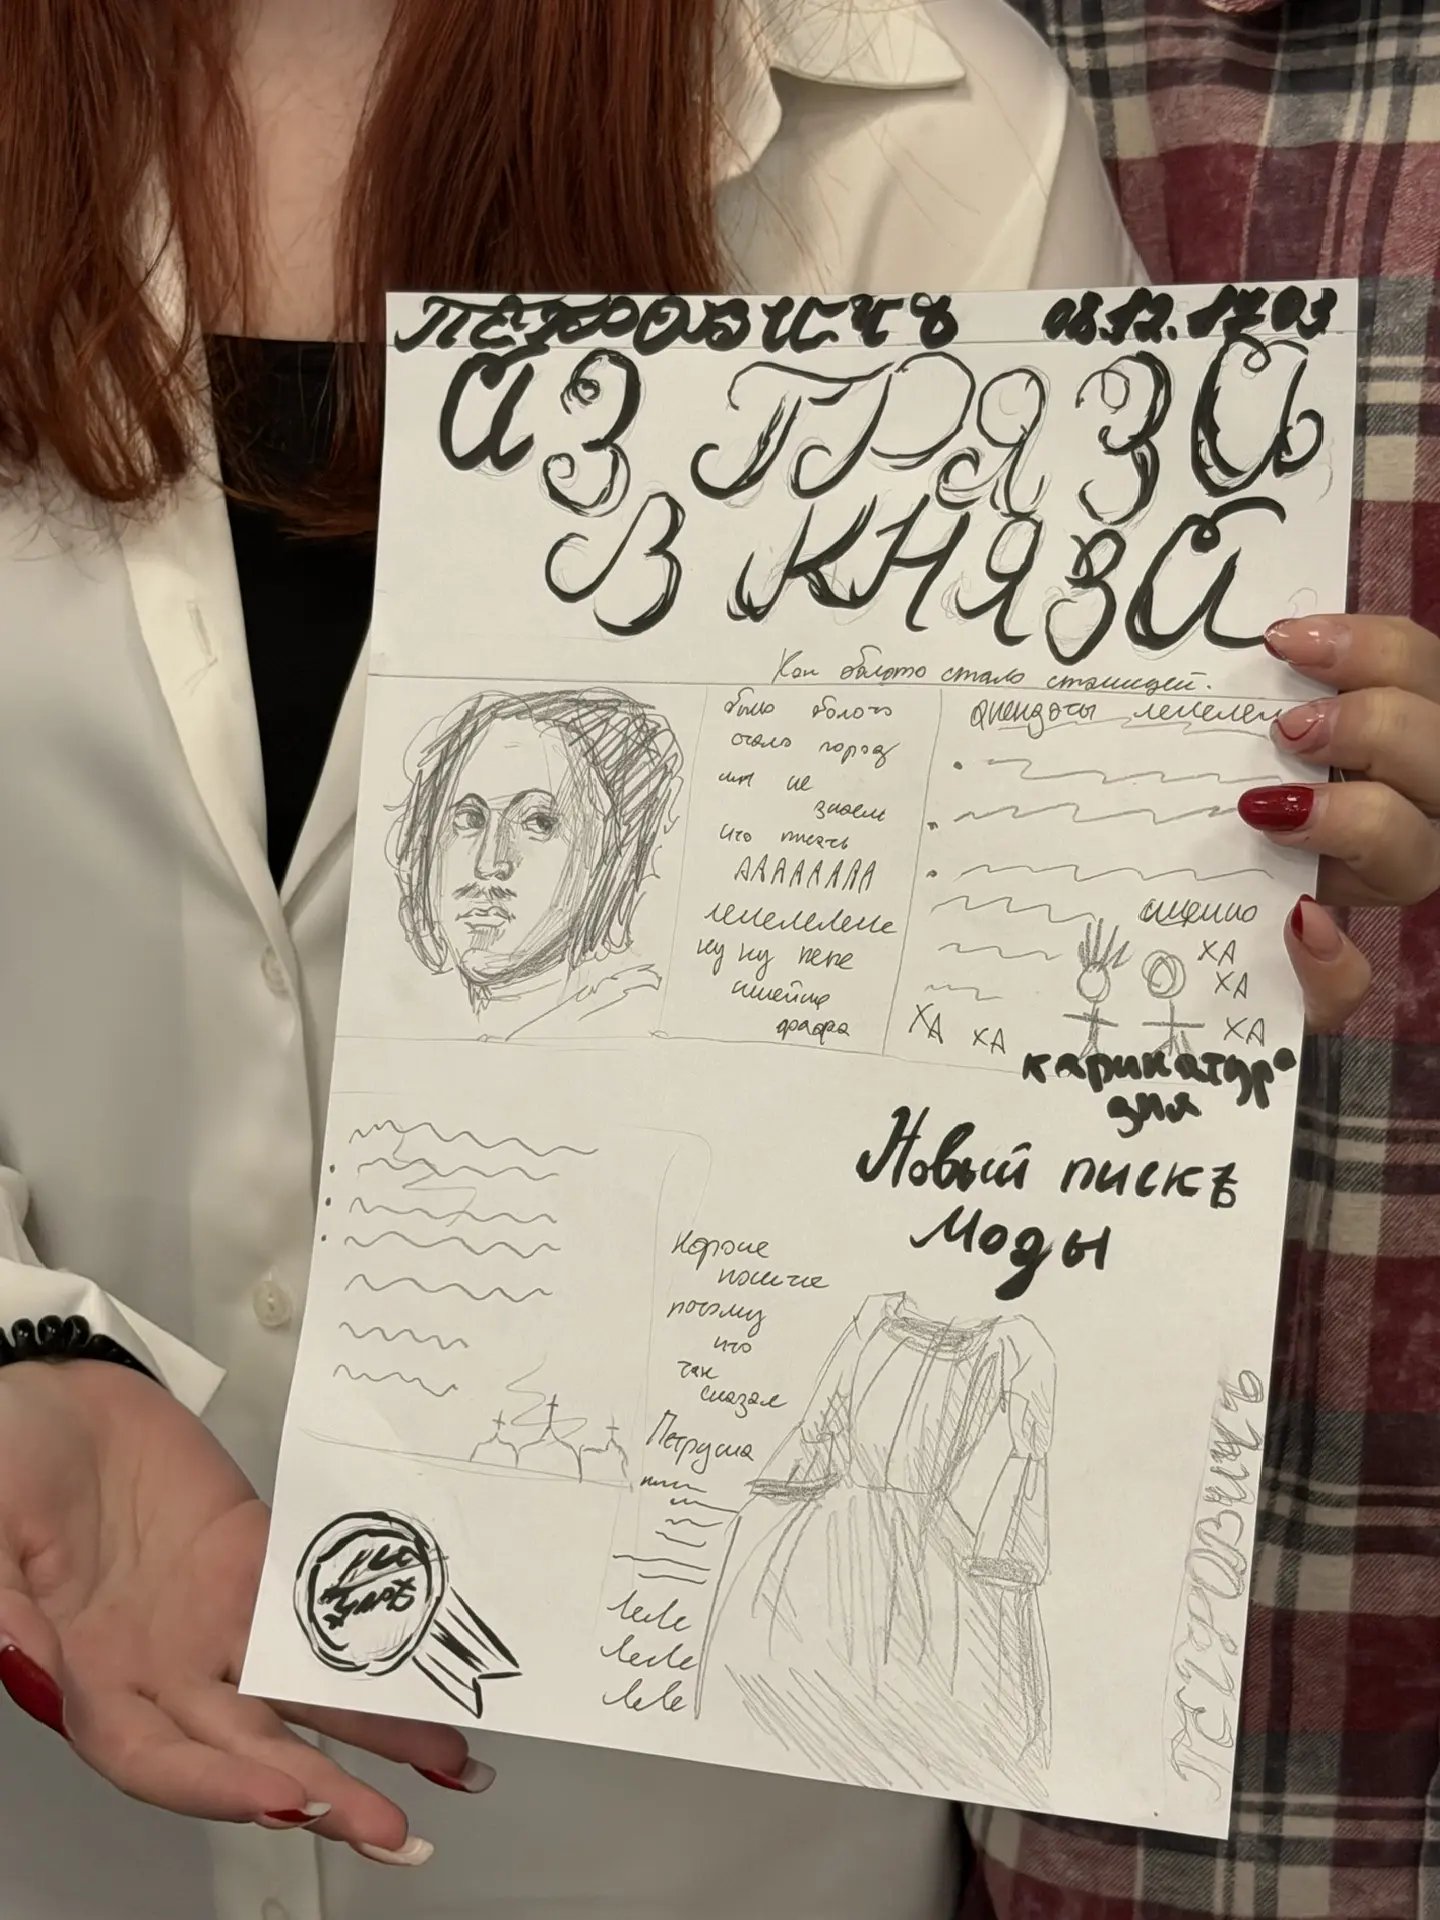 ПЕТРОВИЧЪ 08.12.1703
АЗ ГРЯЗА
В КНЯЗА
Как болото стало столицей.
было болото
стало город
мы не
знаем
что писать
АААААААА
лелелелеле
ну ну пепе
шнейне
фафа
Анекдоты лелелел
смешно
ХА
ХА
ХА
ХА ХА
карикатур
зия
Новый пискъ
Моды
Короче
носите
потому
что
так
сказал
Петруша
леле
леле
леле
ПЕТРОВИЧЪ